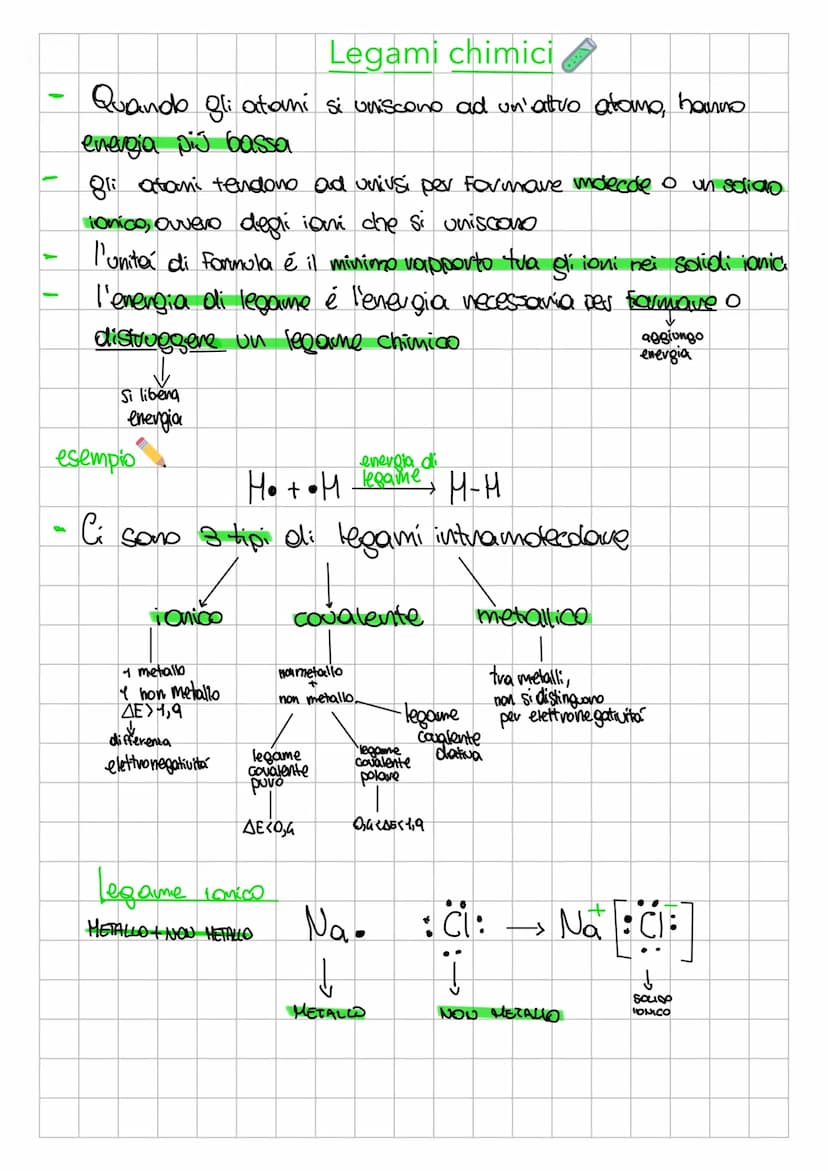 Legami chimici
- Quando gli atomi si uniscono ad un'altro atomo, hanno
energia più bassa
- gli atomi tendono ad unirsi per formare molecole o un solido
ionico, ovvero degli ioni che si uniscono
- l'unitá di formula é il minimo rapporto tra gli ioni nei solidi ionici
- l'energia di legame é l'energia necessaria per formare o
distruggere un legame chimico
aggiungo
energia
si libera
energia
esempio
energia di
legame
H• + •H → H-H
- Ci sono 3 tipi di legami intramolecolare
ionico covalente metallico
1 metallo
1 non metallo
ΔE>1,9
differenza
elettronegativitá
non metallo
+
non metallo
legame
covalente
puro
ΔE<0,4
legame
covalente
polare
0,4<ΔE<1,9
legame
covalente
dativa
tra metalli,
non si distinguono
per elettronegativitá
Legame ionico
METALLO + NON METALLO
Na• :Cl: → Na+ [:Cl:]-
METALLO NON METALLO
SOLIDO
IONICO